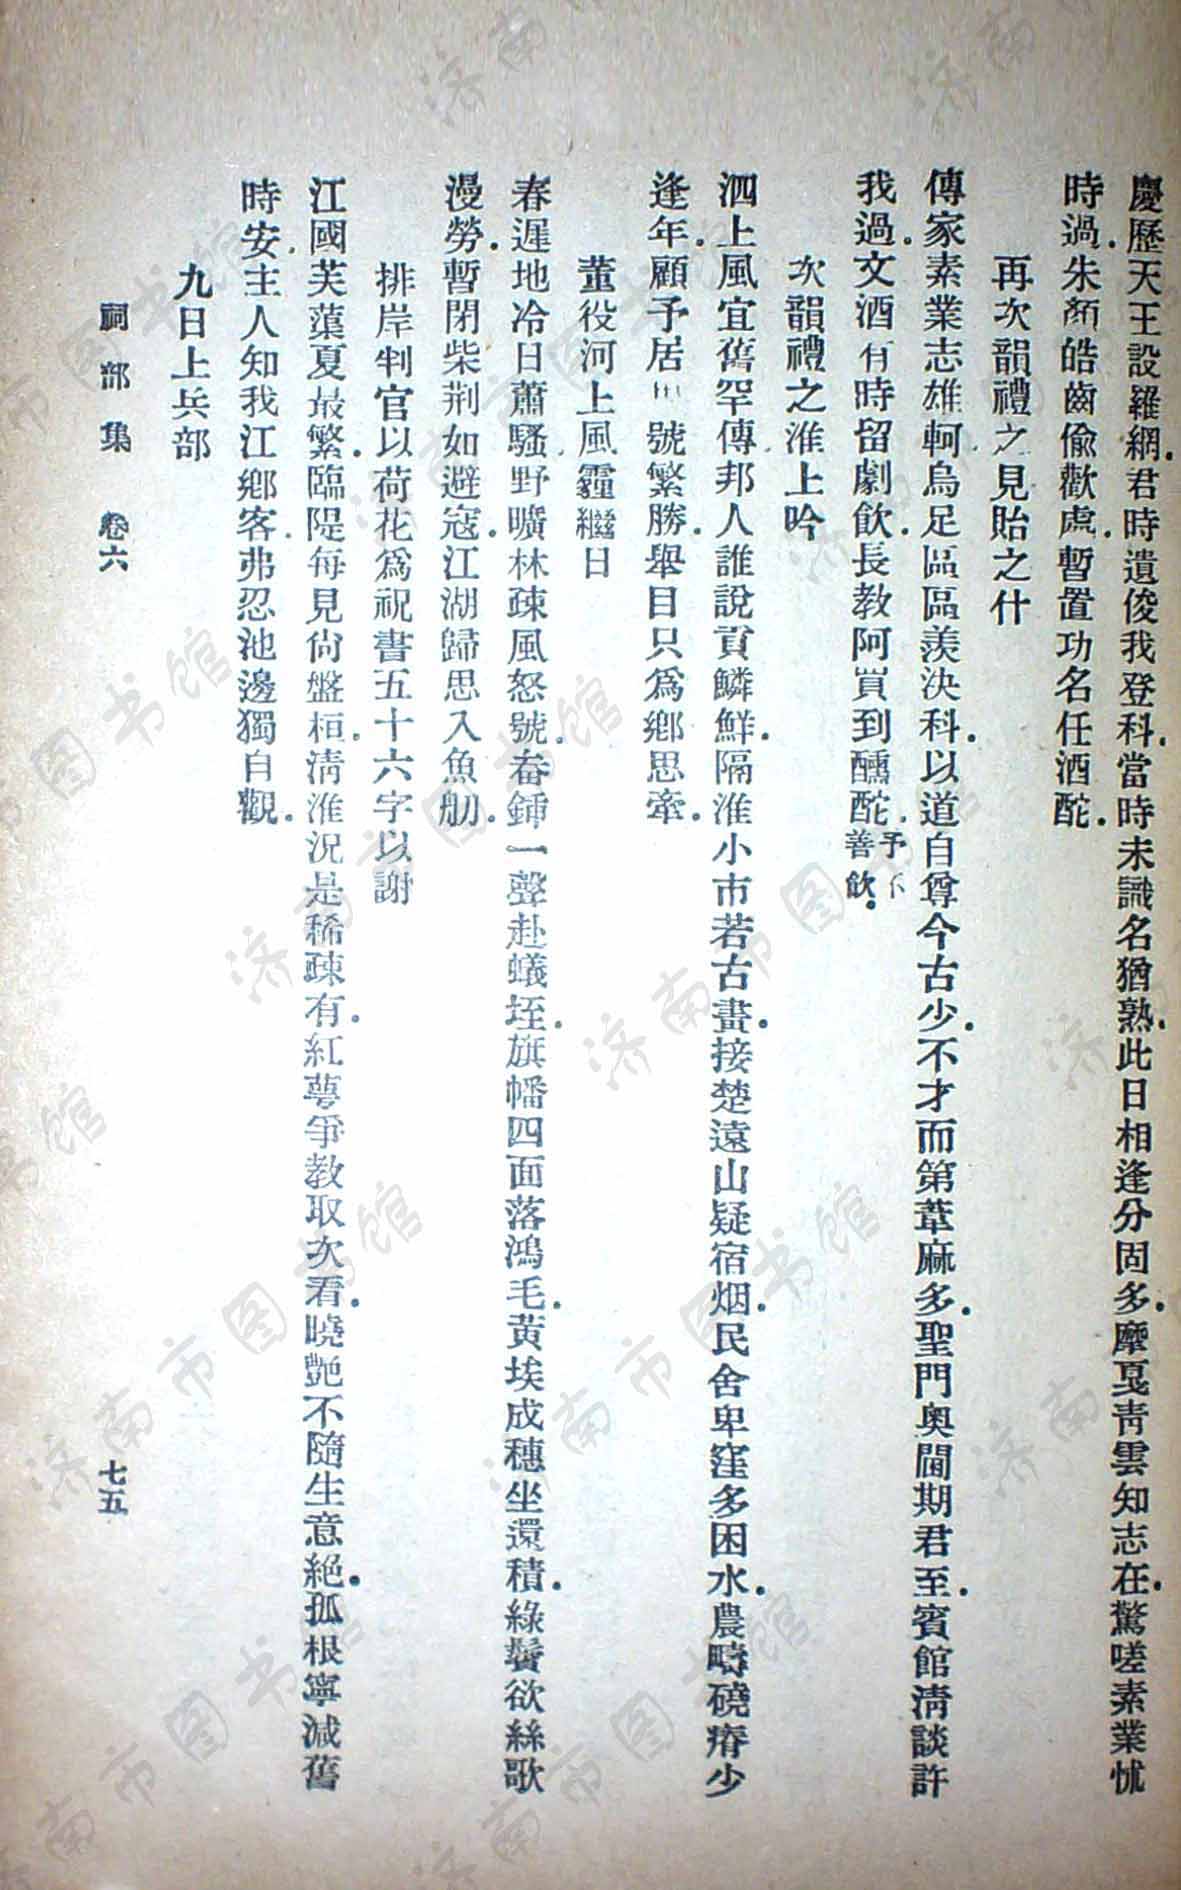 慶歷天王設羅網。君時遺俊我登科。當時未識名猶熟。此日相逢分固多。摩戛靑雲知志在。驚嗟素業怵
時過。朱顏皓齒偷歡處。暫置功名任酒酡。
再次韻禮之見貽之什
傳家素業志雄軻。烏足區區羨決科。以道自尊今古少。不才而第葦麻多。聖門奧閫期君至。賓館淸談許
我過。文酒有時留劇飲。長教阿買到醺酡。予不善飲。
次韻禮之淮上吟
泗上風宜舊罕傳。邦人誰說貢鱗鮮。隔淮小市若古畫。接楚遠山疑宿烟。民舍卑窪多困水。農疇磽瘠少
逢年。顧予居 號繁勝。舉目只為鄉思牽。
董役河上風霾繼日
春遲地冷日蕭騷。野曠林疎風怒號。畚鍤一聲赴蟻垤。旗幡四面落鴻毛。黃埃成穗坐還積。綠鬢欲絲歌
漫勞。暫閉柴荆如避寇。江湖歸思入魚舠。
排岸判官以荷花爲祝書五十六字以謝
江國芙蕖夏最繁。臨隄每見尙盤桓。淸淮況是稀疎有。紅萼爭教取次看。曉艷不隨生意絕。孤根寧減舊
時安。主人知我江鄉客。弗忍池邊獨自觀。
九日上兵部
祠部集 卷六 七五
济南市图书馆